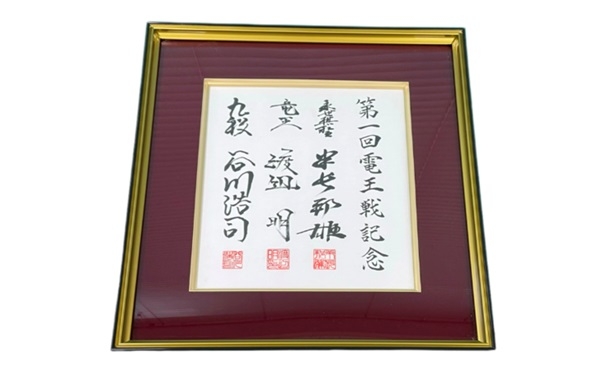 第一回電王戦記念
永世棋聖 米長邦雄
竜王 渡辺 明
九段 谷川浩司